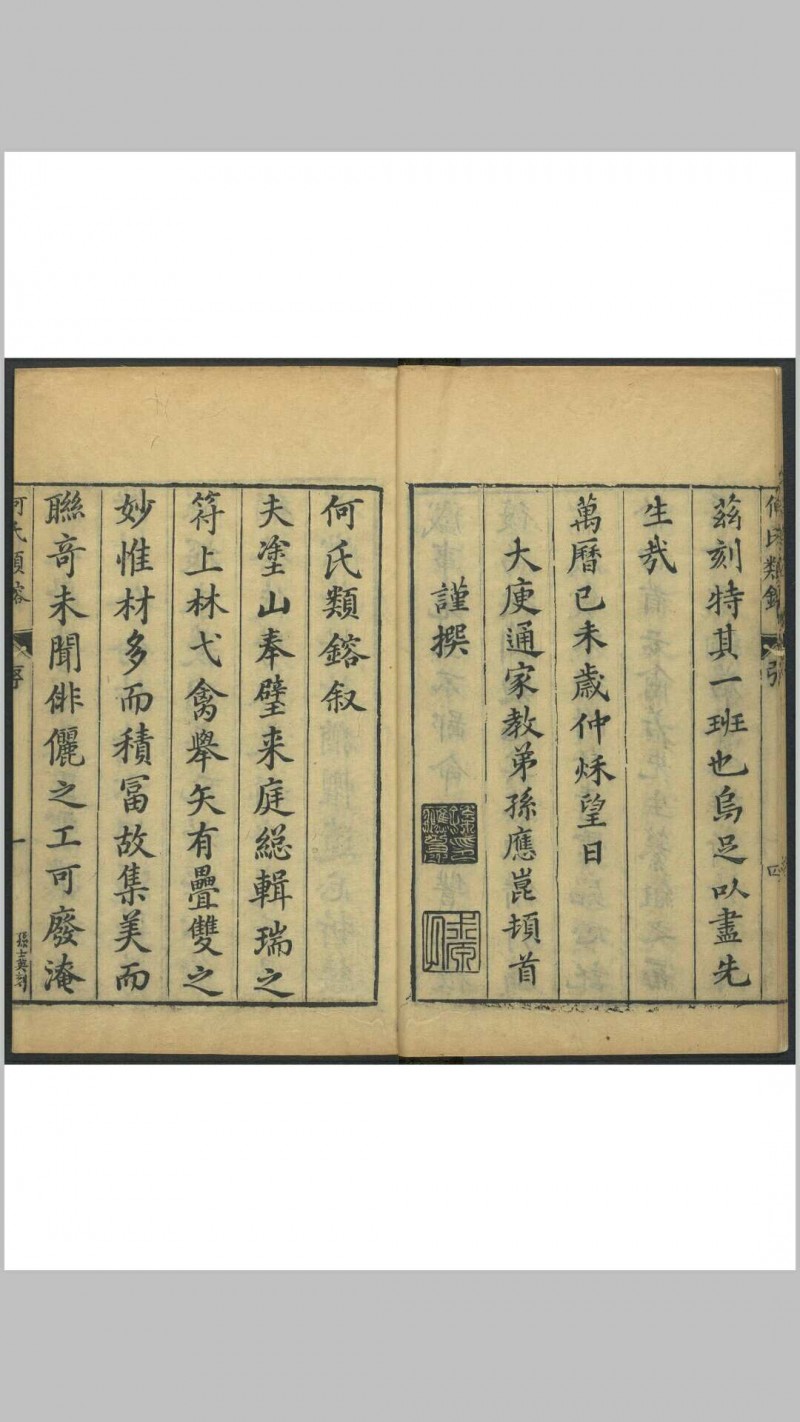 茲刻特其一班也烏足㠯盡先
生㢤
萬曆己未歲仲秌望日
大庾通家教弟孫應崑頓首
謹撰
何氏類鎔叙
夫塗山奉璧来庭緫輯瑞之
符上林弋禽舉矢有疊雙之
妙惟材多而積冨故集美而
聯竒未聞俳儷之工可廢淹
何氏類鎔
序
一